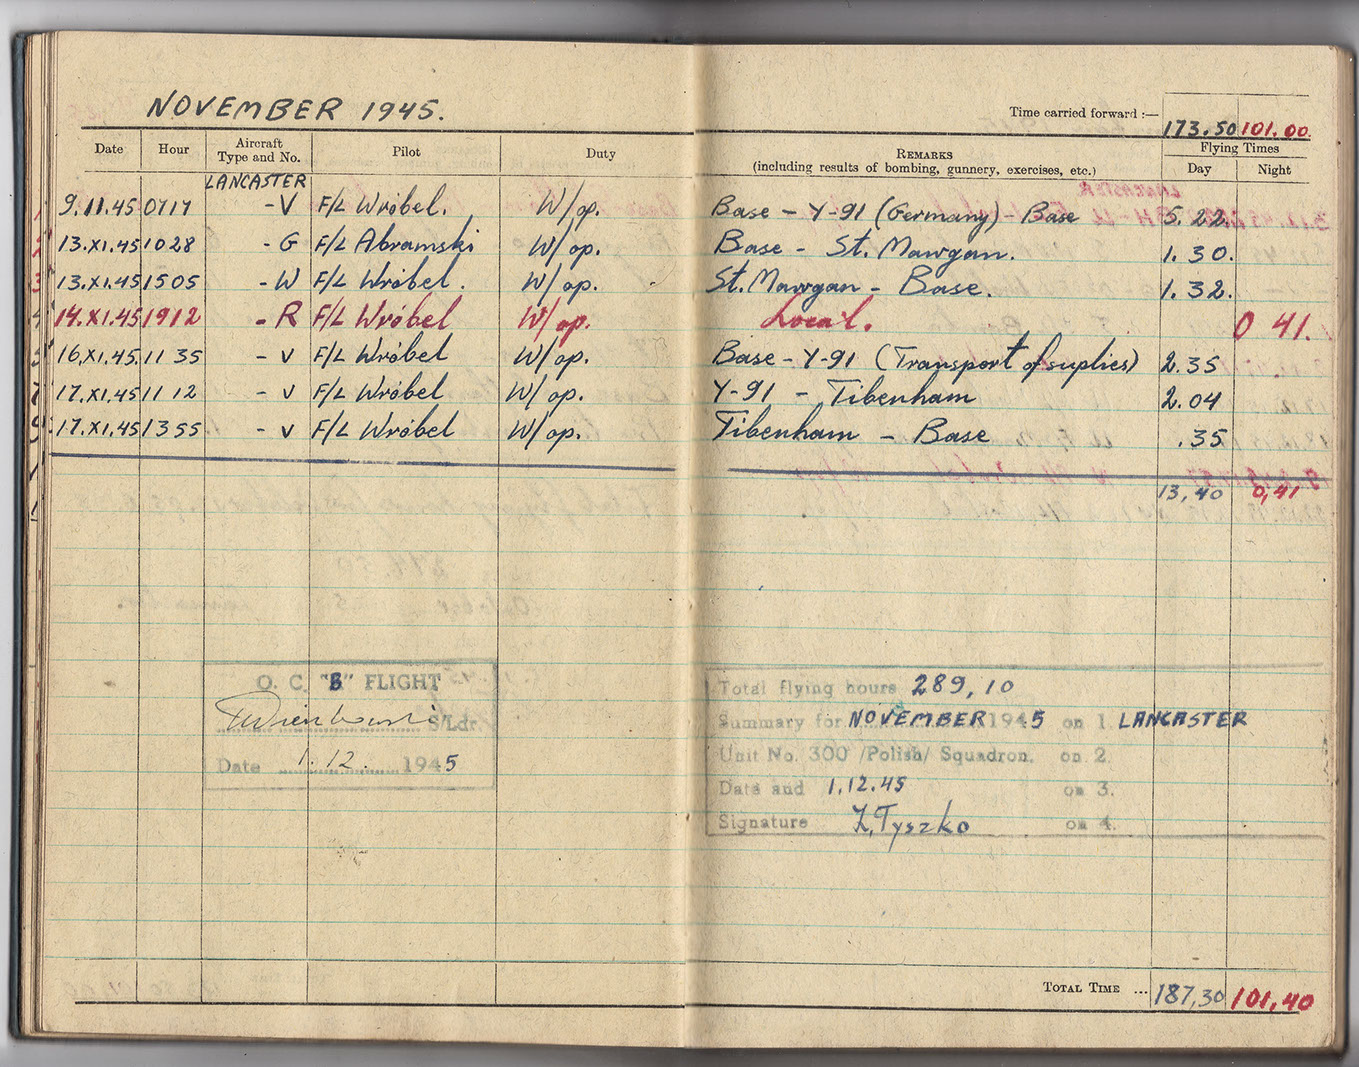 NOVEMBER 1945.
Time carried forward :— 173.50 101.00.
Date Hour Aircraft Type and No. Pilot Duty REMARKS (including results of bombing, gunnery, exercises, etc.) Flying Times Day Night
LANCASTER
9.11.45 0717 -V F/L Wróbel. W/op. Base - Y-91 (Germany) - Base 5.22.
13.XI.45 1028 -G F/L Abramski W/op. Base - St. Mawgan. 1.30.
13.XI.45 1505 -W F/L Wróbel. W/op. St. Mawgan - Base. 1.32.
14.XI.45 1912 -R F/L Wróbel W/op. Local. 0 41.
16.XI.45. 11 35 -V F/L Wróbel W/op. Base - Y-91 (Transport of suplies) 2.35
17.XI.45 11 12 -V F/L Wróbel W/op. Y-91 - Tibenham 2.04
17.XI.45 1355 -V F/L Wróbel W/op. Tibenham - Base .35
13,40 0,41
O. C. "B" FLIGHT
S/Ldr.
Date 1.12. 1945
Total flying hours 289,10
Summary for NOVEMBER 1945 on 1. LANCASTER
Unit No. 300 /Polish/ Squadron. on 2.
Date and 1.12.45 on 3.
Signature Z. Tyszko on 4.
TOTAL TIME ... 187,30 101,40